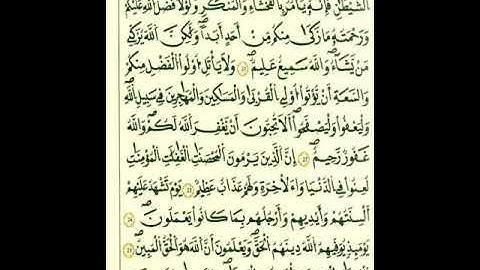 الشَّيْطَٰنِ فَإِنَّهُ يَأْمُرُ بِالْفَحْشَاءِ وَالْمُنْكَرِ وَلَوْلَا فَضْلُ اللَّهِ عَلَيْكُمْ
وَرَحْمَتُهُ مَا زَكَىٰ مِنْكُمْ مِنْ أَحَدٍ أَبَدًا وَلَٰكِنَّ اللَّهَ يُزَكِّي
مَنْ يَشَاءُ وَاللَّهُ سَمِيعٌ عَلِيمٌ ۝ وَلَا يَأْتَلِ أُولُوا الْفَضْلِ مِنْكُمْ
وَالسَّعَةِ أَنْ يُؤْتُوا أُولِي الْقُرْبَىٰ وَالْمَسَٰكِينَ وَالْمُهَٰجِرِينَ فِي سَبِيلِ اللَّهِ
وَلْيَعْفُوا وَلْيَصْفَحُوا أَلَا تُحِبُّونَ أَنْ يَغْفِرَ اللَّهُ لَكُمْ وَاللَّهُ
غَفُورٌ رَحِيمٌ ۝ إِنَّ الَّذِينَ يَرْمُونَ الْمُحْصَنَٰتِ الْغَٰفِلَٰتِ الْمُؤْمِنَٰتِ
لُعِنُوا فِي الدُّنْيَا وَالْآخِرَةِ وَلَهُمْ عَذَابٌ عَظِيمٌ ۝ يَوْمَ تَشْهَدُ عَلَيْهِمْ
أَلْسِنَتُهُمْ وَأَيْدِيهِمْ وَأَرْجُلُهُمْ بِمَا كَانُوا يَعْمَلُونَ ۝
يَوْمَئِذٍ يُوَفِّيهِمُ اللَّهُ دِينَهُمُ الْحَقَّ وَيَعْلَمُونَ أَنَّ اللَّهَ هُوَ الْحَقُّ الْمُبِينُ ۝